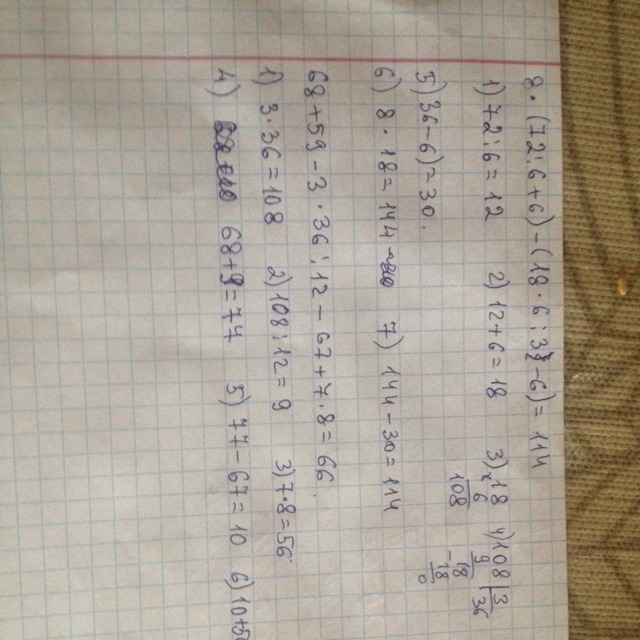 8 · (72 : 6 + 6) - (18 · 6 : 3 - 6) = 114
1) 72 : 6 = 12 2) 12 + 6 = 18 3) 18 × 6 = 108 4) 108 | 3
9 36
-18
18
0
5) 36 - 6) = 30.
6) 8 · 18 = 144 7) 144 - 30 = 114
68 + 59 - 3 · 36 : 12 - 67 + 7 · 8 = 66.
1) 3 · 36 = 108 2) 108 : 12 = 9 3) 7 · 8 = 56
4) 68 + 9 = 77 5) 77 - 67 = 10 6) 10 + 5